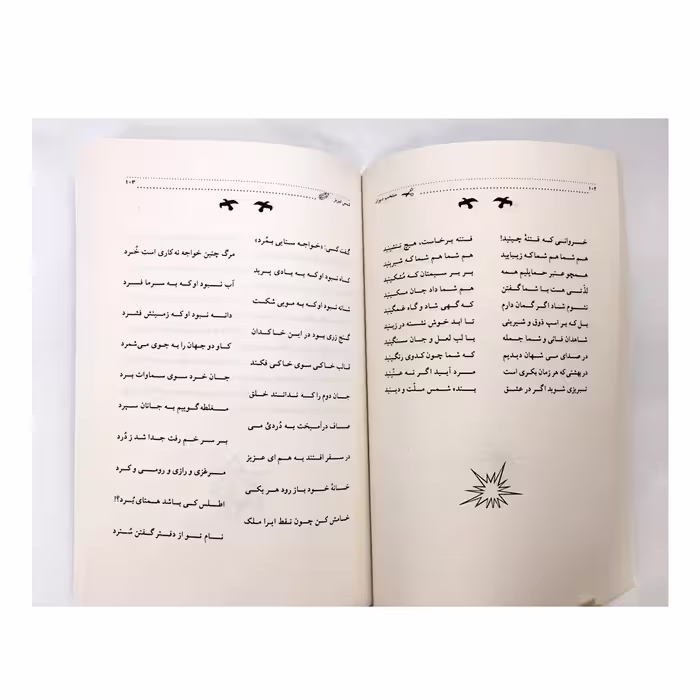 ۱۰۲ منتخب دیوان
خسروانی که فتنهٔ چینید! فتنه برخاست، هیچ ننشینید
هم شما هم شما که زیبایید هم شما هم شما که شیرینید
همچو عنبر حمایلیم همه بر بر سیمتان که مُشکینید
لذّتی هست با شما گفتن هم شما داد جان مسکینید
نشوم شاد اگر گمان دارم که گهی شاد و گاه غمگینید
بل که بر اسپ ذوق و شیرینی تا ابد خوش نشسته در زینید
شاهدان فانی و شما جمله با لب لعل و جان سنگینید
در صدای می شهان دیدیم که شما چون کدوی رنگینید
در بهشتی که هر زمان بکری است مرد آیید اگر نه عنّینید
تبریزی شوید اگر در عشق بنده شمس ملّت و دینید
شمس تبریز ۱۰۳
گفت کسی: «خواجه سنایی بمُرد» مرگ چنین خواجه نه کاری است خُرد
کاه نبود او که به بادی پرید آب نبود او که به سرما فسرد
شانه نبود او که به مویی شکست دانه نبود او که زمینش فشرد
گنج زری بود در این خاکدان کاو دو جهان را به جوی می‌شمرد
قالب خاکی سوی خاکی فکند جان خرد سوی سماوات برد
جان دوم را که ندانند خلق مغلطه گوییم به جانان سپرد
صاف درآمیخت به دُردیّ می بر سر خم رفت جدا شد ز دُرد
در سفر افتند به هم ای عزیز مرغزی و رازی و رومی و کرد
خانهٔ خود باز رود هر یکی اطلس کی باشد همتای بُرد؟!
خامش کن چون نقط ایرا ملک نام تو از دفتر گفتن سُترد